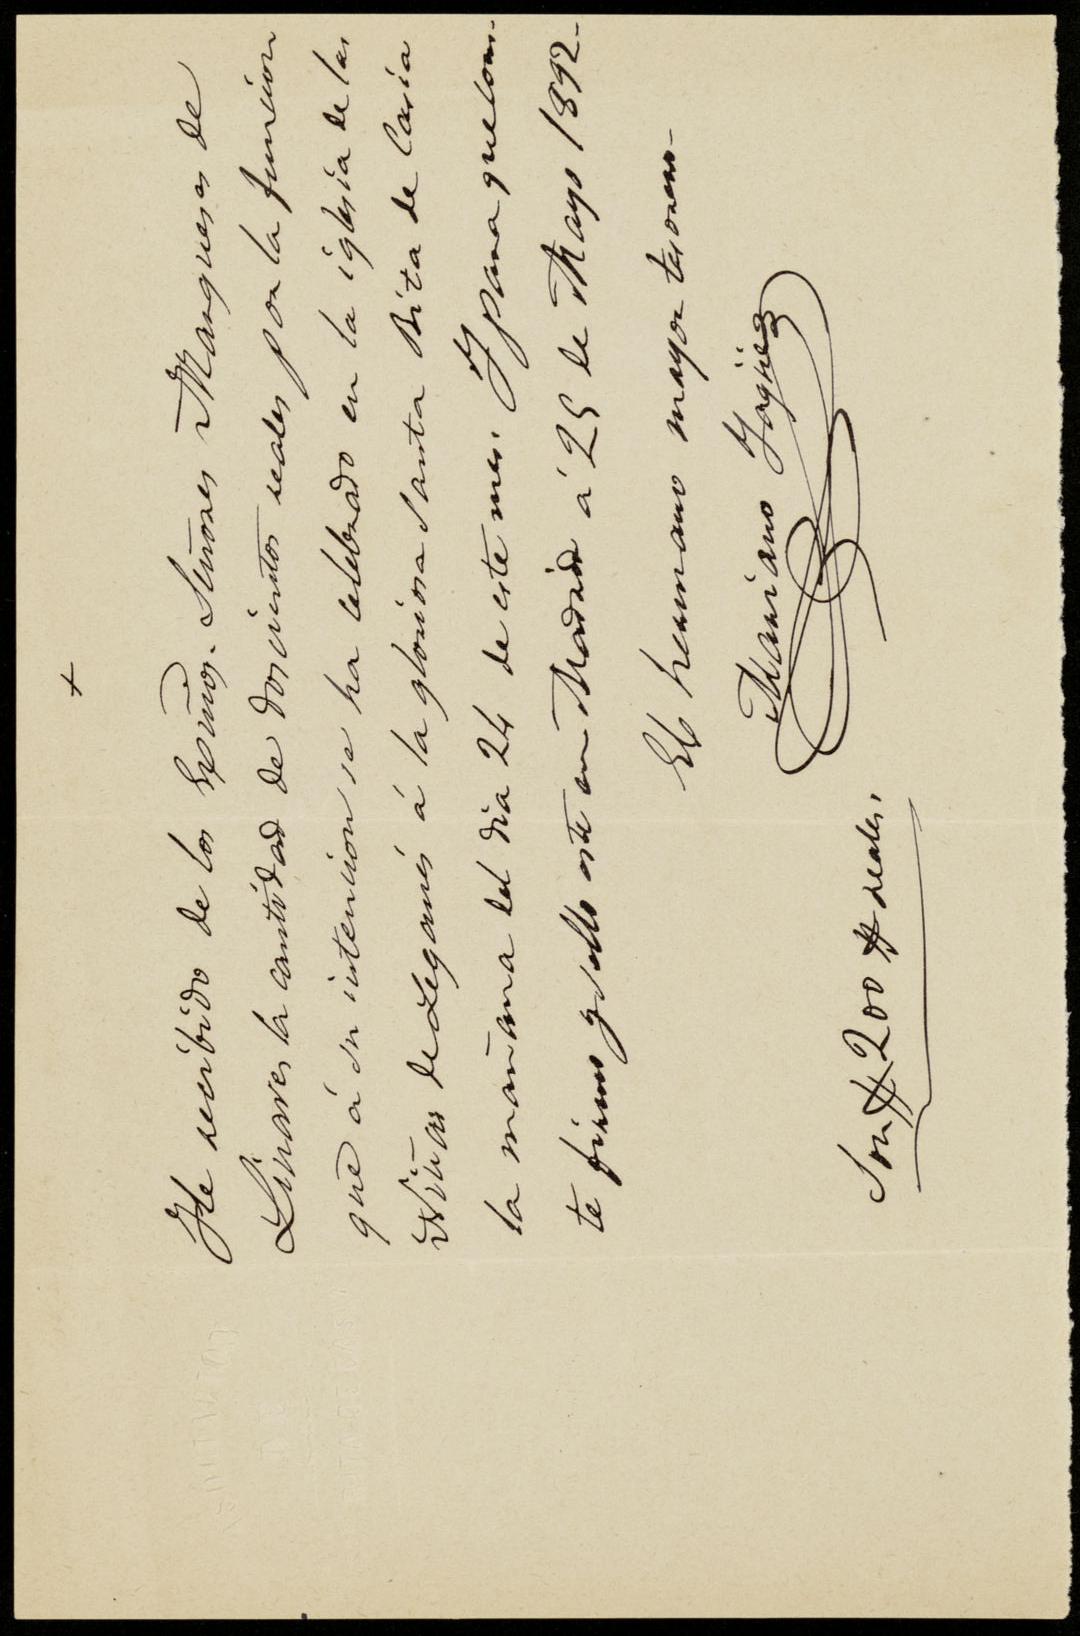 +
He recibido de los Exmos. Señores Marqueses de
Linares la cantidad de doscientos reales por la funcion
que á su intencion se ha celebrado en la iglesia de las
Niñas de Leganés á la gloriosa Santa Rita de Casia
la mañana del dia 24 de este mes. Y para que cons-
te firmo y sello este en Madrid á 25 de Mayo 1892-
El hermano mayor tesorero-
Mariano Yagüez
Son # 200 # reales.